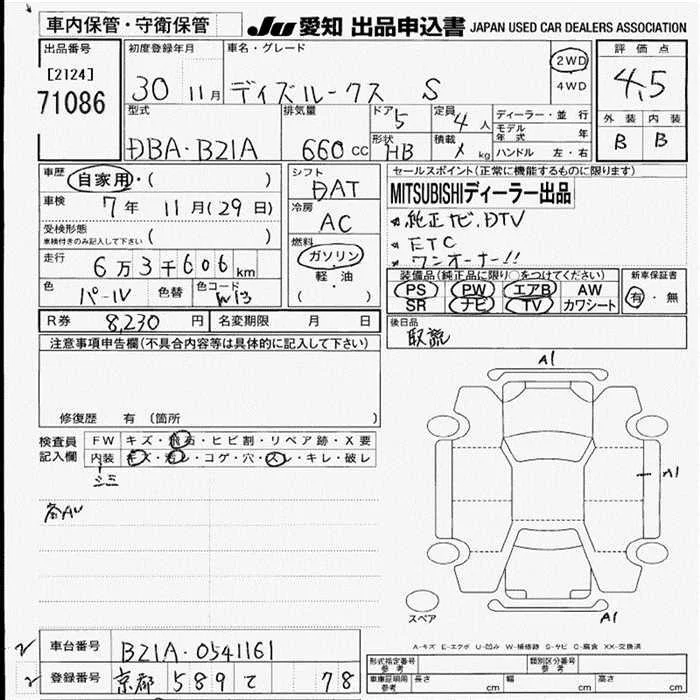 車内保管・守衛保管
JU 愛知 出品申込書 JAPAN USED CAR DEALERS ASSOCIATION
出品番号
[2124]
71086
初度登録年月
30 11月
車名・グレード
デイズルークス S
2WD
4WD
評価点
4.5
外装 内装
B B
型式
DBA・B21A
排気量
660 cc
ドア
5
形状
HB
定員
4 人
積載
kg
ディーラー・並行
モデル年式 年
ハンドル 左・右
車歴 自家用・( )
車検 7年 11月(29日)
受検形態
車検付きのみ記入して下さい ( )
走行 6万3千606km
色 パール 色替 色コード W13
シフト
DAT
冷房
AC
燃料
ガソリン
軽・油
( )
セールスポイント(正常に機能するものに限ります)
MITSUBISHIディーラー出品
*純正ナビ、DTV
*ETC
*ワンオーナー!!
装備品(純正品に限り○をつけてください)
PS PW エアB AW
SR ナビ TV カワシート
新車保証書
有・無
R券 8,230 円 名変期限 月 日
後日品
取説
注意事項申告欄(不具合内容等は具体的に記入して下さい)
修復歴 有 (箇所 )
検査員記入欄
FW キズ・飛石・ヒビ割・リペア跡・X要
内装 キズ・汚レ・コゲ・穴・スレ・キレ・破レ
シミ
各AU
A1
A1
A1
スペア
A-キズ E-エクボ U-凹み W-補修跡 S-サビ C-腐食 XX-交換済
車台番号 B21A-0541161
登録番号 京都 589 て 78
形式指定番号 参考
類別区分番号 参考
車庫証明用 参考 長さ cm 幅 cm 高さ cm